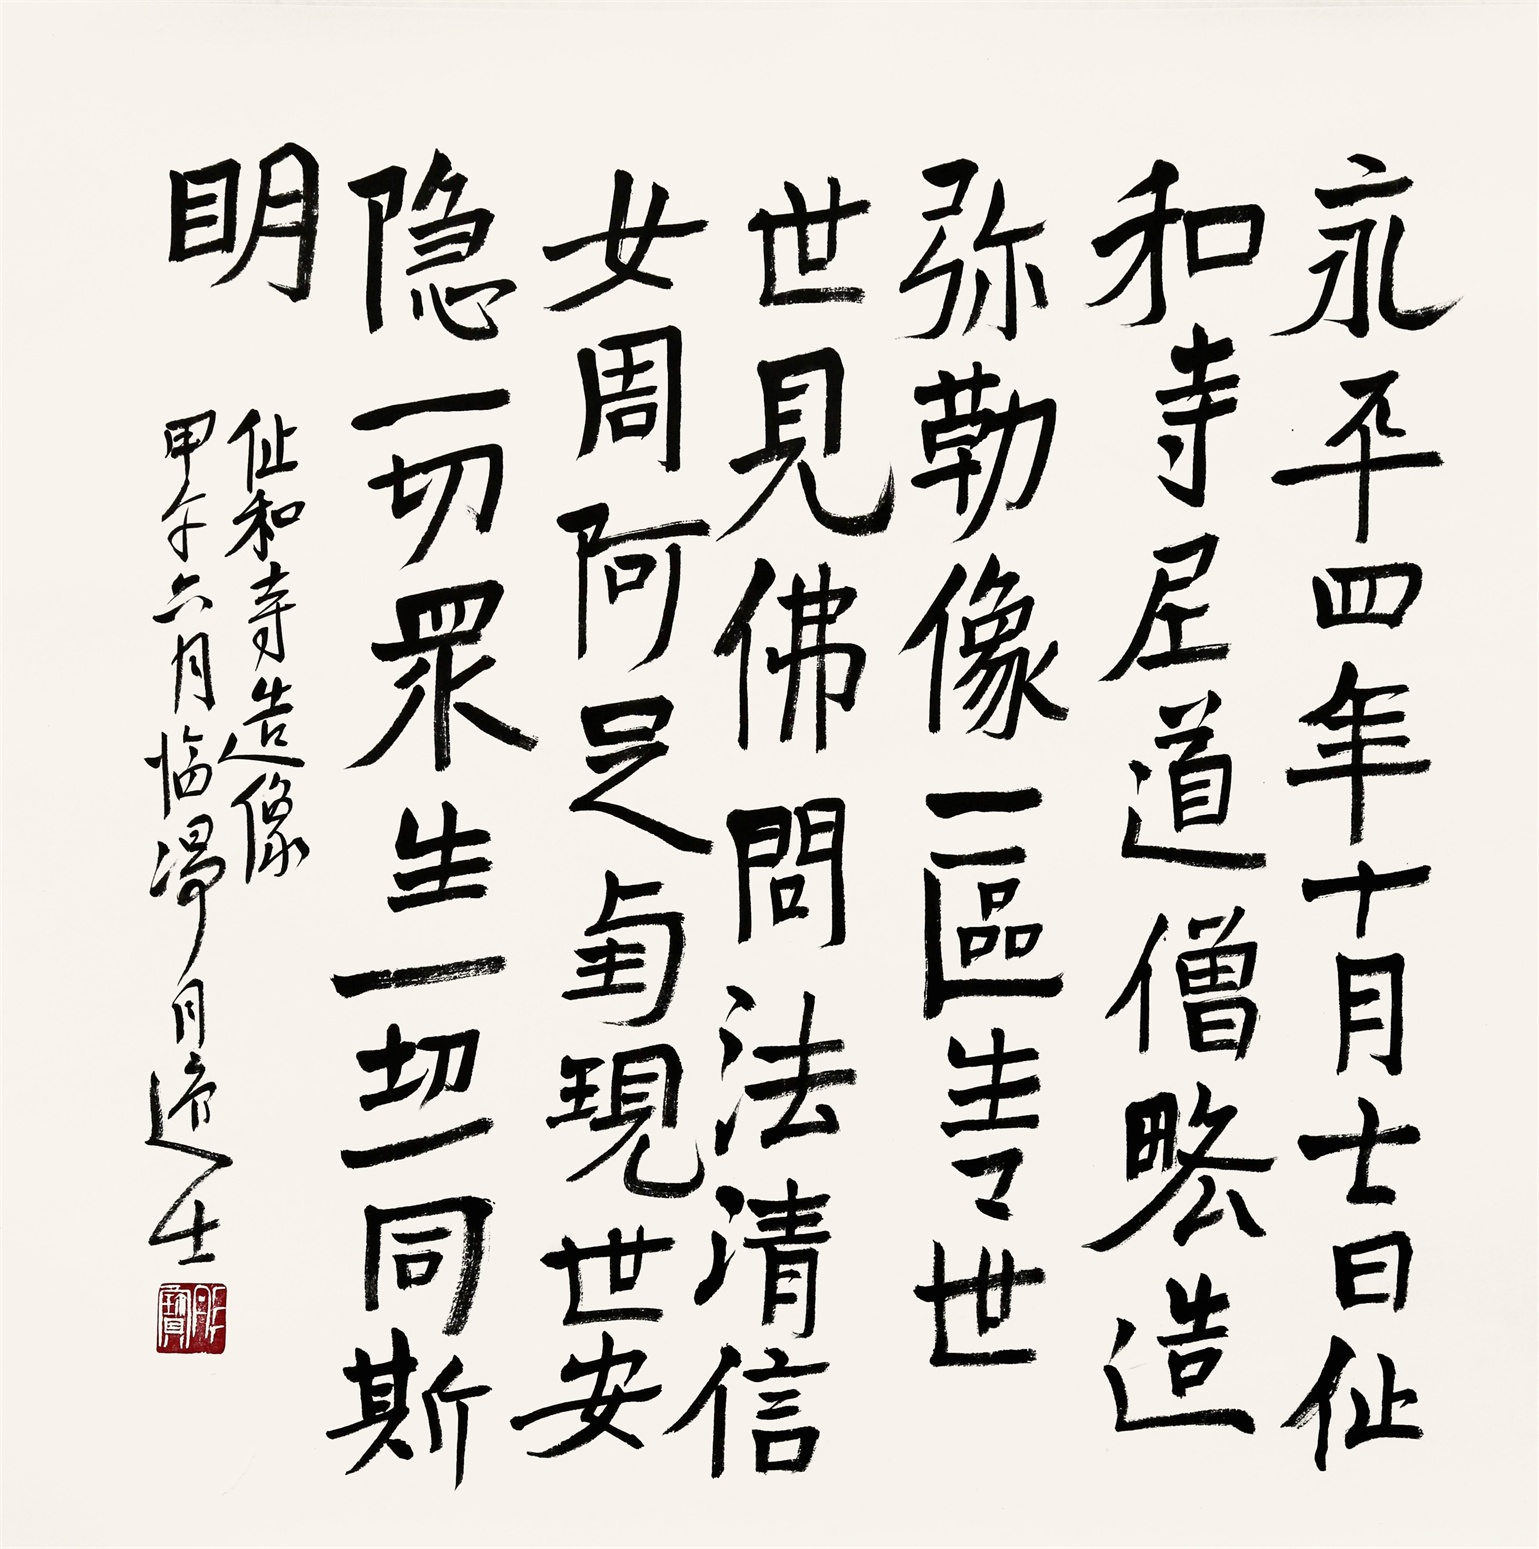 永平四年十月七日仙
和寺尼道僧略造
弥勒像一區生々世
世見佛問法清信
女周阿足為現世安
隐一切眾生一切一同斯
明
仙和寺造像
甲午六月临淂月道士